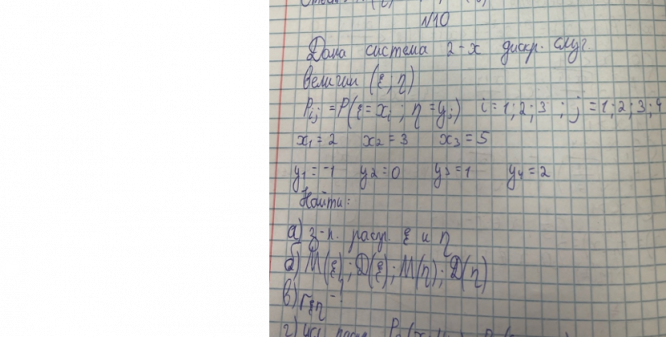 №10
Дана система 2-х дискр. случ.
величин (ξ, η)
Pij = P(ξ = xi ; η = yj) i = 1; 2; 3 ; j = 1; 2; 3; 4
x1 = 2 x2 = 3 x3 = 5
y1 = -1 y2 = 0 y3 = 1 y4 = 2
Найти:
а) з-н. распр. ξ и η
б) M(ξ); D(ξ); M(η); D(η)
в) rξη - ?
г) усл. распр.